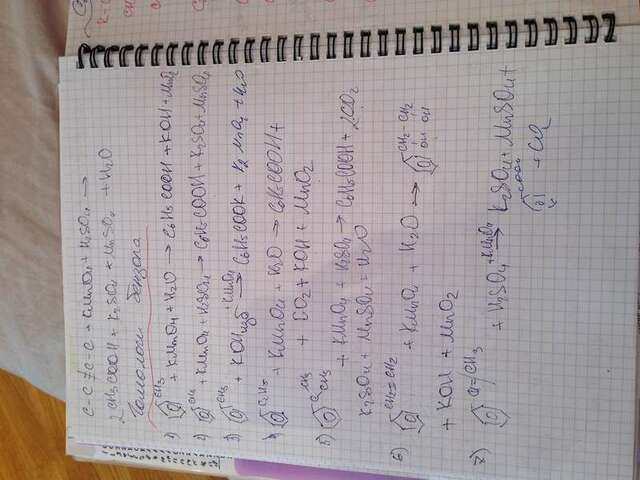 C-C≠C-C + KMnO4 + H2SO4 →
2CH3COOH + K2SO4 + MnSO4 + H2O
Гомологи бензола
1) CH3 + KMnO4 + H2O → C6H5COOH + KOH + MnO2
2) CH3 + KMnO4 + H2SO4 → C6H5COOH + K2SO4 + MnSO4
3) CH3 + KOH изб + KMnO4 → C6H5COOK + K2MnO4 + H2O
4) C2H5 + KMnO4 + H2O → C6H5COOH +
+ CO2 + KOH + MnO2
5) CH3 CH3 + KMnO4 + H2SO4 → C6H5COOH + 2CO2
K2SO4 + MnSO4 + H2O
6) CH=CH2 + KMnO4 + H2O → CH-CH2 OH OH
+ KOH + MnO2
7) CH3 + H2SO4 + KMnO4 → K2SO4 + MnSO4 +
COOH + CO2